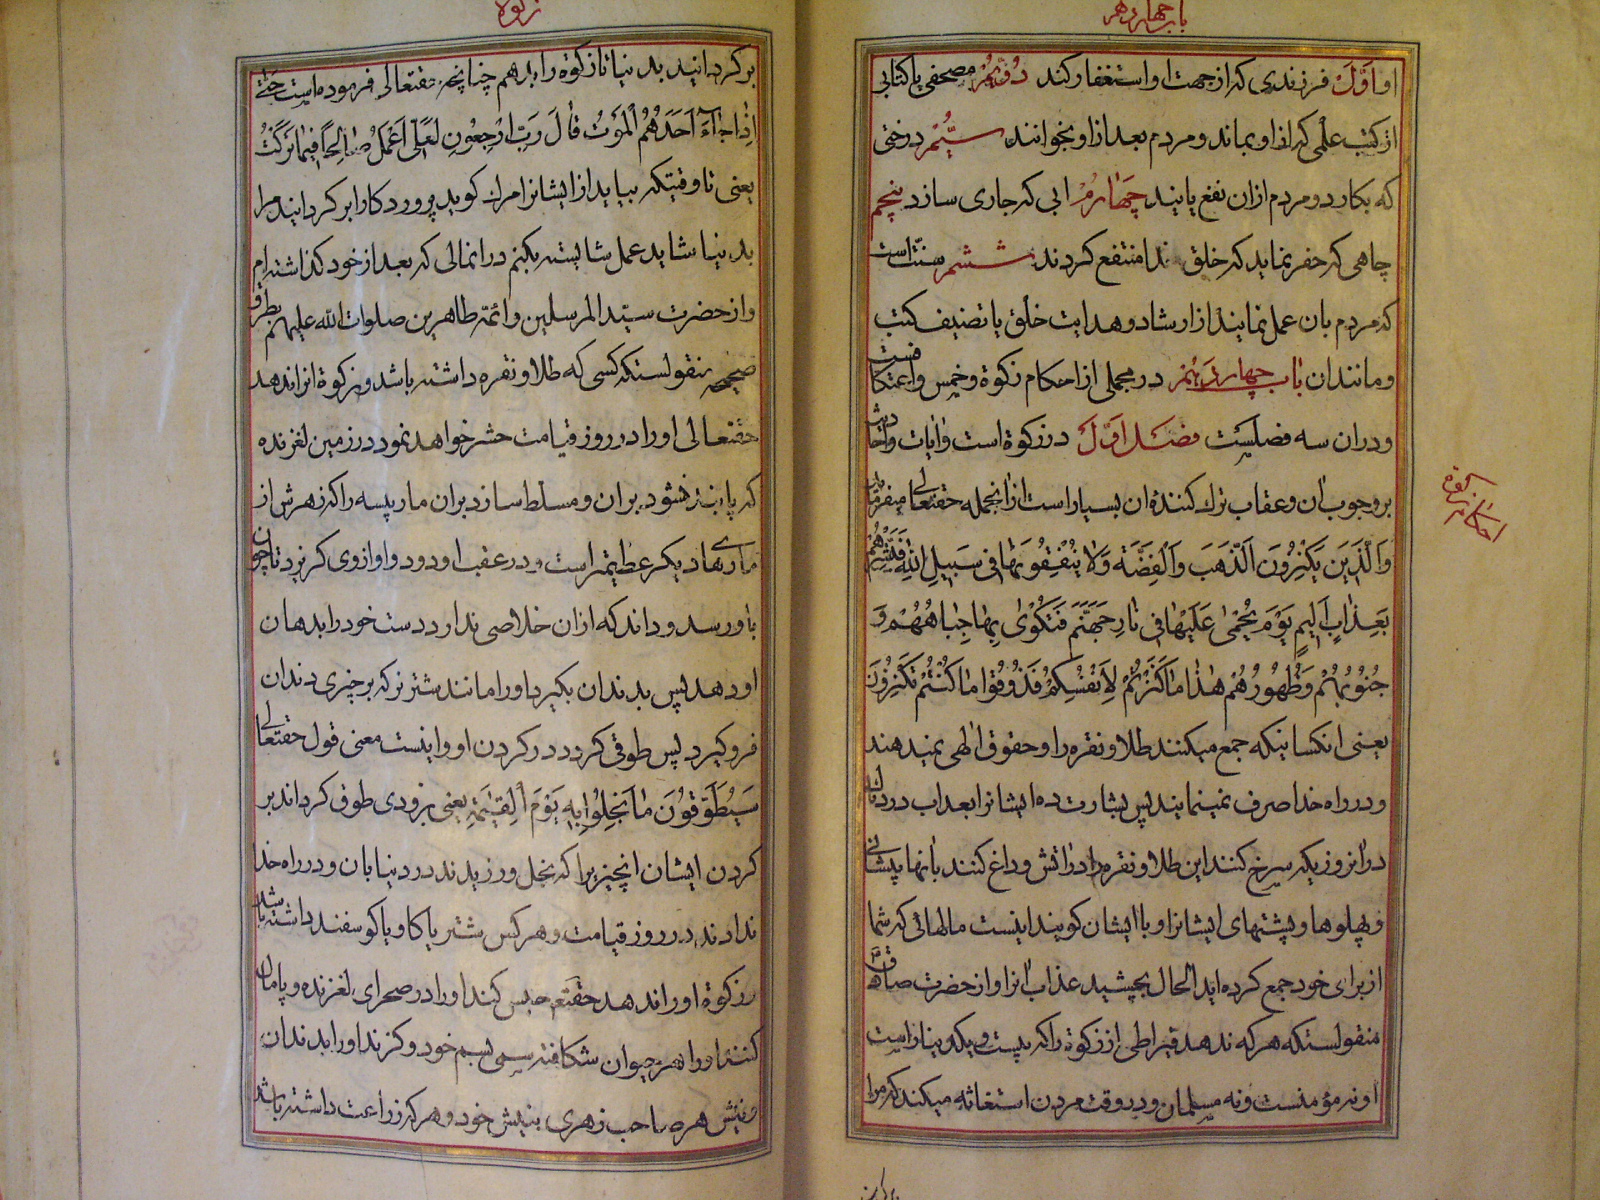 باب چهاردهم
او اَوَّلْ فرزندی که از جهت او استغفار کند دُوُّیُمْ مصحفی یا کتابی
از کتب علمی که از او بماند و مردم بعد از او بخوانند سیُّیُمْ درختی
که بکارد و مردم ازان نفع یابند چَهٰارُمْ ابی که جاری سازد پنجم
چاهی که حفر نماید که خلق خدا منتفع کردند ششم سنّت است
که مردم بان عمل نمایند از ارشاد و هدایت خلق یا تصنیف کتب
و مانندان باب چهاردهم در مجملی از احکام زکوة و خمس و اعتکاف است
و دران سه فصلست فصل اوّل در زکوة است و ایات و احادیث
بر وجوب ان و عقاب ترك کننده ان بسیار است از انجمله حقتعالی میفرماید
وَالَّذینَ یَکْنِزُونَ الَّذهَبَ وَالْفِضَّةَ وَلٰا یُنْفِقُونَهٰا فی سَبیلِ اللّٰهِ فَبَشِّرْهُمْ
بِعَذٰابٍ اَلیمٍ یَوْمَ یُحْمٰی عَلَیْهٰا فی نٰارِ جَهَنَّمَ فَتُکْوٰی بِهٰا جِبٰاهُهُمْ وَ
جُنُوبُهُمْ وَظُهُورُهُمْ هٰذٰا مٰا کَنَزْتُمْ لِاَنْفُسِکُمْ فَذُوقُوا مٰا کُنْتُمْ تَکْنِزُونَ
یعنی انکسانیکه جمع میکنند طلا و نقره را و حقوق الٰهی نمیدهند
و در راه خدا صرف نمینمایند پس بشارت ده ایشانرا بعذاب دردناك
در انروزیکه سرخ کنند این طلا و نقره را در اتش و داغ کنند بانها پیشانی
و پهلوها و پشتهای ایشانرا و با ایشان کویند اینست مالهائی که شما
از برای خود جمع کرده اید الحال بچشید عذاب انرا و از حضرت صادق
منقولستکه هر که ندهد قیراطی از زکوة را که بیست و یکدینار است
او نه مؤمنست و نه مسلمان و در وقت مردن استغاثه میکند که مرا
احکام زکوة
زکوة
بر کردانید بدنیا تا زکوة را بدهم چنانچه حقتعالی فرموده است حَتّٰی
اِذٰا جٰآءَ اَحَدَهُمُ الْمَوْتُ قٰالَ رَبِّ ارْجِعُونِ لَعَلّی اَعْمَلُ صٰالِحًا فیمٰا تَرَکْتُ
یعنی تا وقتیکه بیاید از ایشانرا مرك کوید پروردکارا بر کردانید مرا
بدنیا شاید عمل شایسته بکنم در انمالی که بعد از خود کذاشته ام
و از حضرت سیّد المرسلین و ائمّه طاهرین صلوات الله علیهم بطرق
صحیحه منقولستکه کسی که طلا و نقره داشته باشد و زکوة انرا ندهد
حقتعالی او را در روز قیامت حشر خواهد نمود در زمین لغزنده
که پا بند نشود بران و مسلّط سازد بران مار پیسه را که زهرش از
مارهای دیکر عظیمتر است و در عقب او دود و او از وی کریزد تا چون
باو رسد و داند که ازان خلاصی ندارد دست خود را بدهان
او دهد پس بدندان بکیرد او را مانند شتر نر که بر چیزی دندان
فرو کیرد پس طوقی کردد در کردن او و اینست معنی قول حقتعالی
سَیُطَوَّقُونَ مٰا بَخِلُوا بِهِ یَوْمَ الْقِیٰمَةِ یعنی بزودی طوق کرداند بر
کردن ایشان انچیزیرا که بخل ورزیدند در دنیا بان و در راه خدا
ندادند در روز قیامت و هر کس شتر یا کاو یا کوسفند داشته باشد
و زکوة او را ندهد حقتعـ حبس کند او را در صحرای لغزنده و پامال
کنند او را هر حیوان شکافته سمی بسم خود و کزند او را بدندان
و نیش هر صاحب زهری بنیش خود و هر که زراعت داشته باشد